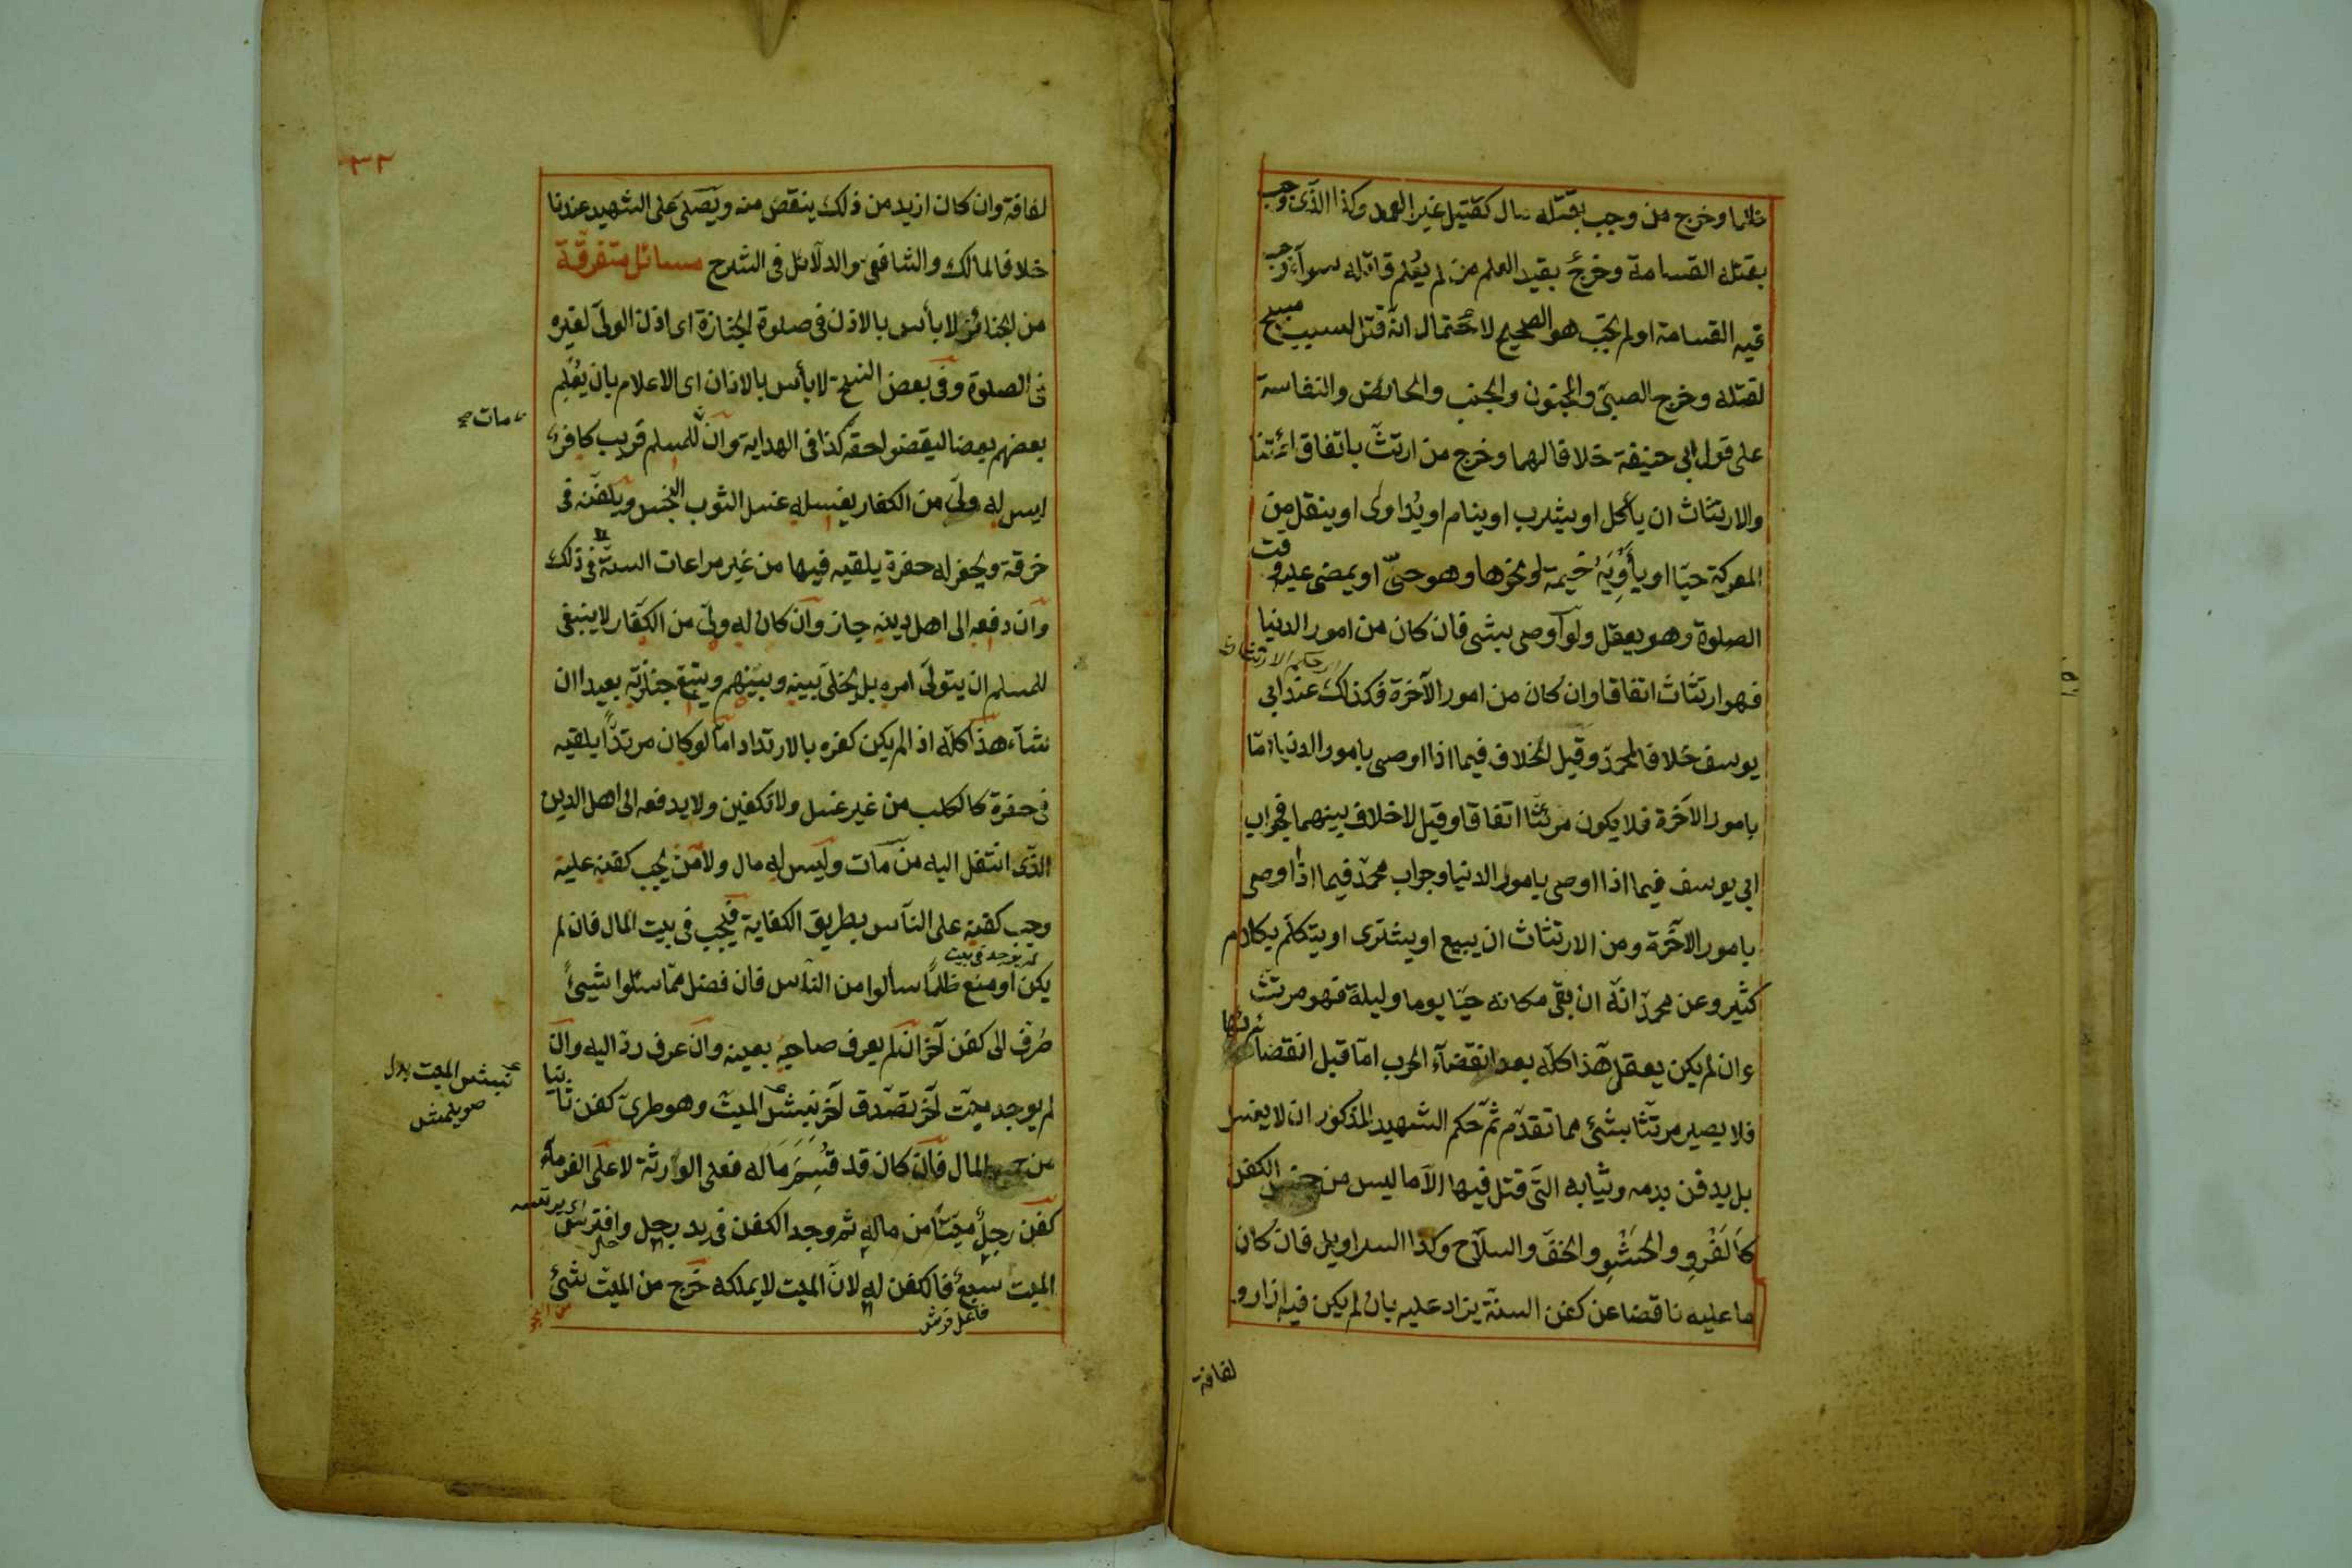 ظلما وخرج من وجب بقتله مال كقتيل غير العمد وكذا الذى وجب
بقتله القسامة وخرج بقيد العلم من لم يعلم قاتله سوآء وجب
فيه القسامة او لم يجب هو الصحيح لاحتمال انه قتل لسبب مبيح
لقتله وخرج الصبىّ والمجنون والجنب والحائض والنفاسة
على قول ابى حنيفة خلافا لهما وخرج من ارتثّ باتفاق ائمتنا
والارتثاث ان يأكل او يشرب او ينام او يُداوى او ينقل من
المعركة حيّا او يأويه خيمة او نحوها وهو حىّ او يمضى عليه وقت
الصلوة وهو يعقل ولو اوصى بشى فان كان من امور الدنيا
فهو ارتثاث اتفاقا وان كان من امور الآخرة فكذلك عند ابى
يوسف خلافا لمحمد وقيل الخلاف فيما اذا اوصى بامور الدنيا امّا
بامور الآخرة فلا يكون مرتثّا اتفاقا وقيل لا خلاف بينهما فجواب
ابى يوسف فيما اذا اوصى بامور الدنيا وجواب محمد فيما اذا اوصى
بامور الآخرة ومن الارتثاث ان يبيع او يشترى او يتكلم بكلام
كثير وعن محمد انّه ان بقى مكانه حيّا يوما وليلة فهو مرتث
وان لم يكن يعقل هذا كلّه بعد انقضآء الحرب امّا قبل انقضائها
فلا يصير مرتثّا بشئ مما تقدّم ثم حكم الشهيد المذكور ان لا يغسل
بل يدفن بدمه وثيابه التى قتل فيها الّا ما ليس من جنس الكفن
كالفرو والحشو والخفّ والسلاح وكذا السراويل فان كان
ما عليه ناقصا عن كفن السنّة يزاد عليه بان لم يكن فيه ازار و
لفافة
٣٢
لفافة وان كان ازيد من ذلك ينقص منه ويصلى على الشهيد عندنا
خلافا لمالك والشافعى والدلائل فى الشرح مسائل متفرقة
من الجنائز لا بأس بالاذن فى صلوة الجنازة اى اذن الولى لغيره
فى الصلوة وفى بعض النسخ لا بأس بالاذان اى الاعلام بان يُعْلِم
بعضهم بعضا ليقضوا حقه كذا فى الهداية وان للمسلم قريب كافر
مات صح
ليس له ولىّ من الكفار يغسله غسل الثوب النجس ويكفّنه فى
خرقة ويحفر له حفرة يلقيه فيها من غير مراعات السنة فى ذلك
وان دفعه الى اهل دينه جاز وان كان له ولىّ من الكفّار لا ينبغى
للمسلم ان يتولى امره بل يخلى بينه وبينهم ويتبع جنازته بعيدا ان
شآء هذا كلّه اذا لم يكن كفره بالارتداد امّا لو كان مرتدًّا يلقيه
فى حفرة كالكلب من غير غسل ولا تكفين ولا يدفعه الى اهل الدين
الذى انتقل اليه من مات وليس له مال ولا من يجب كفنه عليه
وجب كفنه على النّاس بطريق الكفاية فيجب فى بيت المال فان لم
يكن او منع ظلمًا سألوا من النّاس فان فضل ممّا سئلوا شيئ
صُرف الى كفن آخر ان لم يعرف صاحبه بعينه وان عرف ردّ اليه وان
لم يوجد ميت آخر تصدق آخر نبش الميت وهو طرى كفن ثانيا
نبش الميت بدل
صويلمش
من جميع المال فان كان قد قُسِمَ ماله فعلى الوارثة لا على الغرماء
كفن رجلٌ ميّتًا من ماله ثم وجد الكفن فى يد رجل وافترش
الميت سبعٌ فالكفن له لانّ الميت لا يملكه خرج من الميت شئ
فاعل فرش